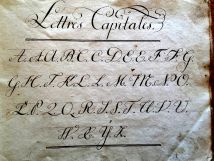 Lettres Capitales.
A. A. A. B. C. C. D. E. E. F. F. G.
G H. I. K. L. L. M. M. N. O.
P. P. Q. O. R. I. S. T. U. V. U.
W. X. Y. Z.